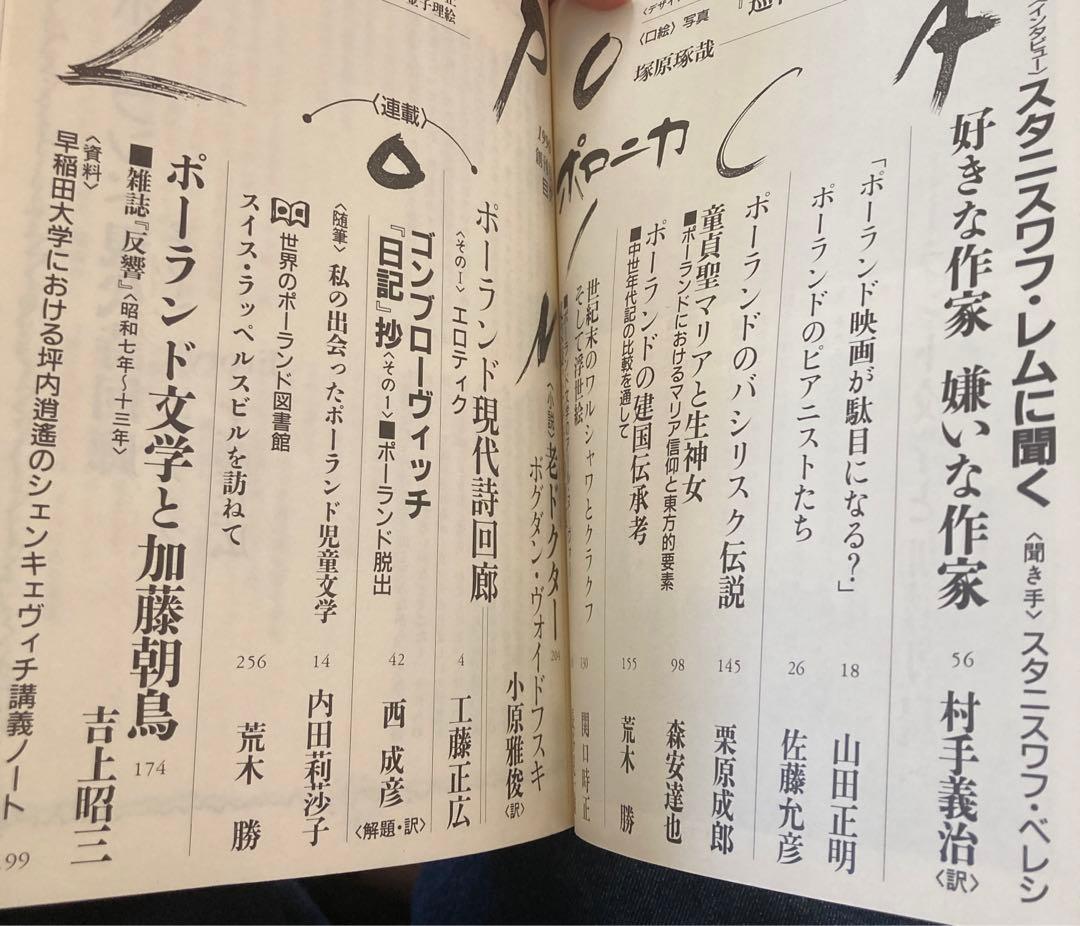 〈インタビュー〉スタニスワフ・レムに聞く 〈聞き手〉スタニスワフ・ベレシ
好きな作家 嫌いな作家 56 村手義治〈訳〉
「ポーランド映画が駄目になる?」 18 山田正明
ポーランドのピアニストたち 26 佐藤允彦
ポーランドのバシリスク伝説 145 栗原成郎
童貞聖マリアと生神女 98 森安達也
■ポーランドにおけるマリア信仰と東方的要素
ポーランドの建国伝承考 155 荒木 勝
■中世年代記の比較を通して
世紀末のワルシャワとクラクフ 130 関口時正
そして浮世絵
〈口絵〉写真
塚原琢哉
ポロニカ
POLONICA
〈小説〉老ドクター 204
ボグダン・ヴォイドフスキ
小原雅俊〈訳〉
〈連載〉
ポーランド現代詩回廊 4 工藤正広
〈その一〉エロティク
ゴンブローヴィッチ
『日記』抄〈その一〉■ポーランド脱出 42 西 成彦〈解題・訳〉
〈随筆〉私の出会ったポーランド児童文学 14 内田莉莎子
世界のポーランド図書館
スイス・ラッペルスビルを訪ねて 256 荒木 勝
ポーランド文学と加藤朝鳥 174 吉上昭三
■雑誌『反響』〈昭和七年〜十三年〉
〈資料〉
早稲田大学における坪内逍遙のシェンキェヴィチ講義ノート 199
金子理絵